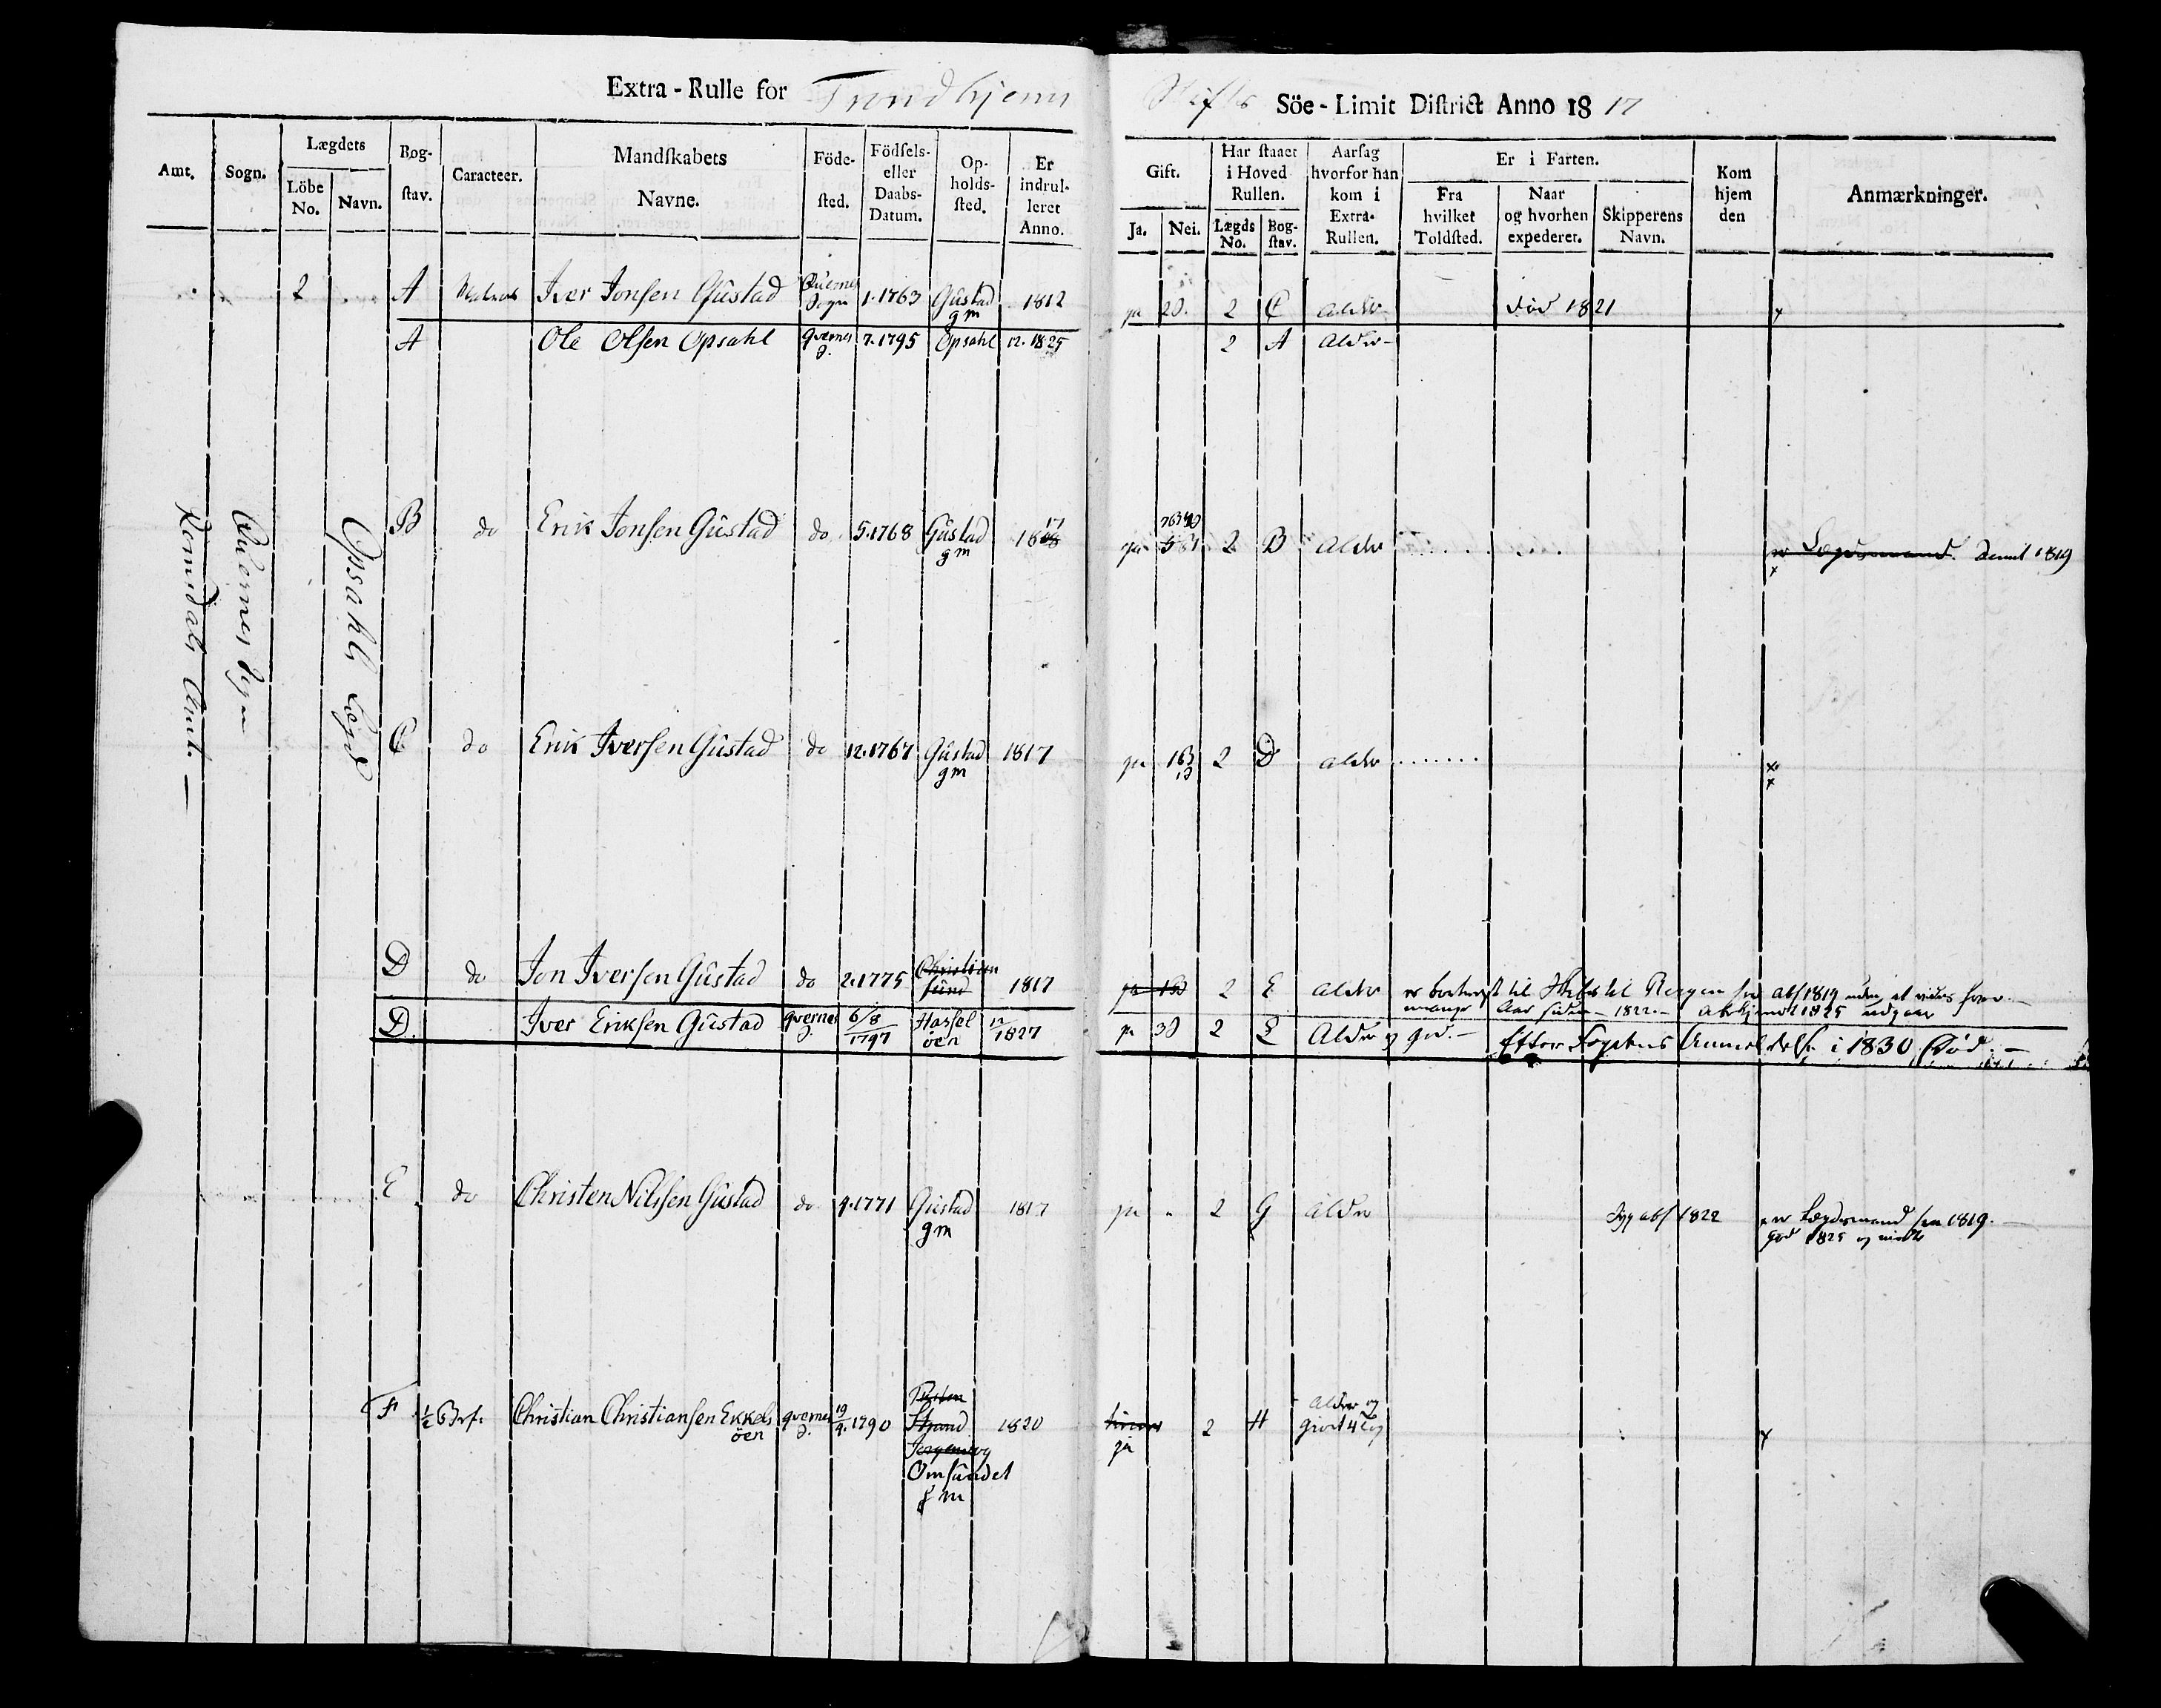 Extra-Rulle for Trondhjems
Stifts Söe-Limit District Anno 1817
Amt.
Sogn.
Lægdets
Löbe No.
Navn.
Bog-stav.
Caracteer.
Mandskabets Navne.
Föde-sted.
Födsels- eller Daabs-Datum.
Op-holds-sted.
Er indrul-leret Anno.
Gift.
Ja.
Nei.
Har staaet i Hoved Rullen.
Lægds No.
Bog-stav.
Aarsag hvorfor han kom i Extra-Rullen.
Er i Farten.
Fra hvilket Toldsted.
Naar og hvorhen expederet.
Skipperens Navn.
Kom hjem den
Anmærkninger.
Romsdals Amt.
Qvernes Sogn
Opsahls Lægd
2 A Matros Iver Jonsen Gûstad Qvernes Sogn 1.1763 Gûstad gm 1812 ja 2 C alder Död 1821 x
A Ole Olsen Opsahl Qvernes S. 7.1795 Opsahl 12.1825 2 A Alder-
B do Erik Jonsen Gûstad do 5.1768 Gûstad gm 1817 ja 2 B alder er Lægdsmand. 1819
x
C do Erik Iversen Gûstad do 12.1767 Gûstad gm 1817 ja 2 D alder x
x
D do Jon Iversen Gûstad do 2.1775 Christiansund 1817 ja 2 E alder er bortreist til til Bergen abs 1819 uden at vides hvor.
mange Aar siden - 1822.- 1825 udgaar
D. Iver Eriksen Gûstad Qvernes S 6/8 1797 Hassel öen 12/1827 ja 3D 2 E Alder og god.- Efter Fogdens Anmeldelse i 1830 Död.-
E do Christen Nilssen Gûstad do 4.1771 Gûstad gm 1817 ja 2 G alder Syg abs 1822 er Lægdsmand sen 1819.-
god 1825 og
F ½ Bef. Christian Christiansen Ekkels öen Qvernes S. 19/4.1790 Strand 1820 2 H Alder og
giort 4 Tog x
ja
Omsûndet
fm